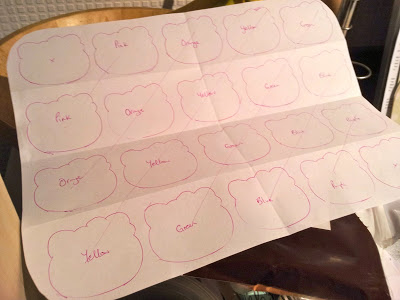 Pink
Orange
Yellow
Green
Pink
Orange
Yellow
Green
Blue
Orange
Yellow
Green
Blue
Purple
Yellow
Green
Blue
Purple